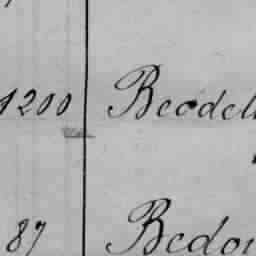 1200 Beodel
87 Bedo